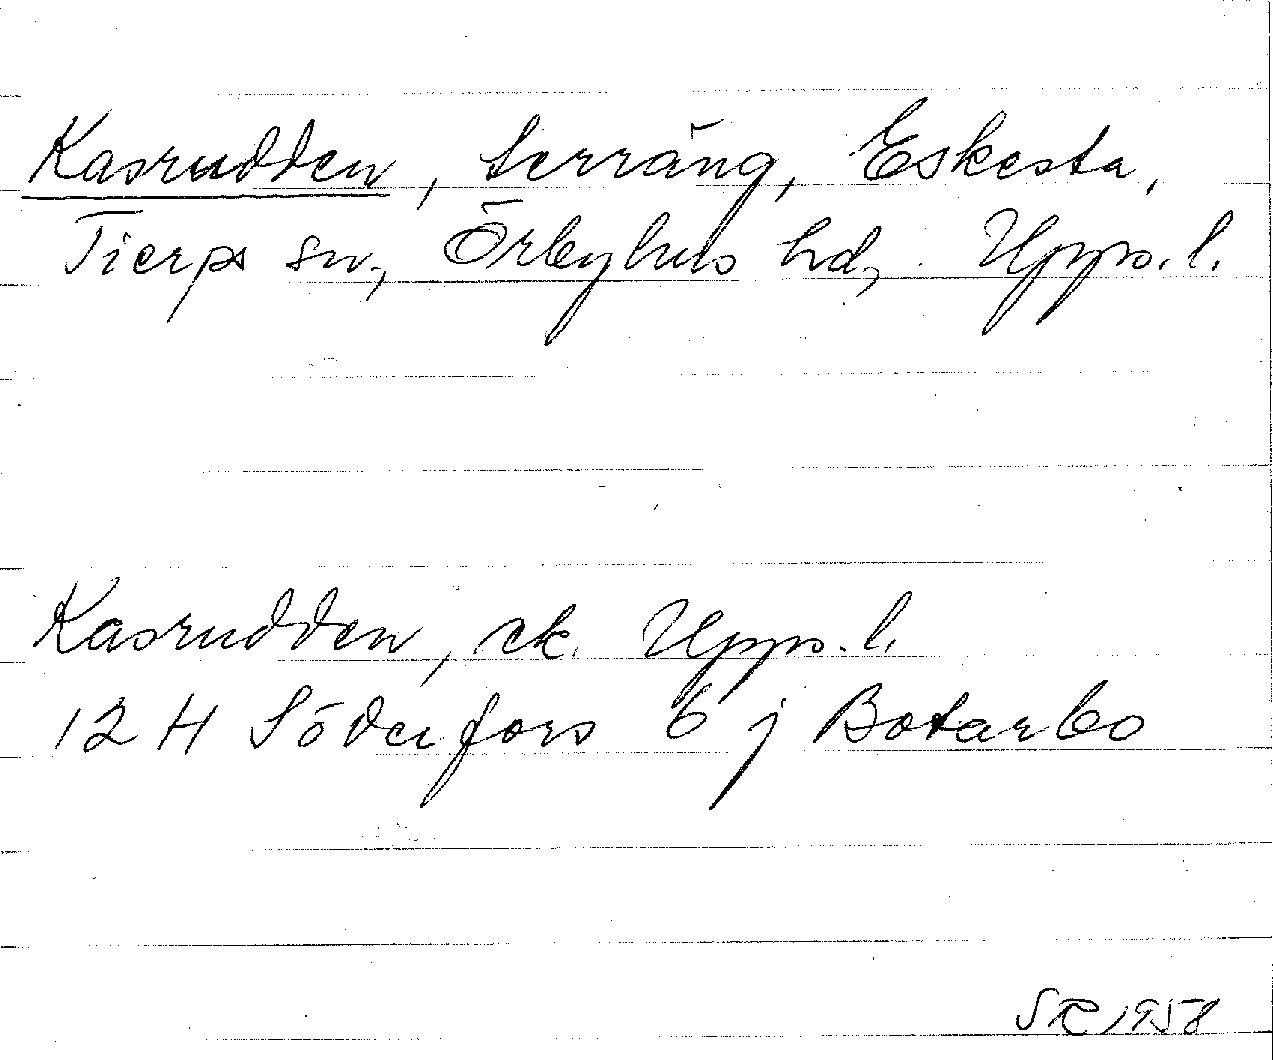 Kasrudden, terräng, Eskesta,
Tierps sn, Örbyhus hd, Upps. l.
Kasrudden, ek. Upps. l.
12 H Söderfors 6 j Botarbo
SR 1958